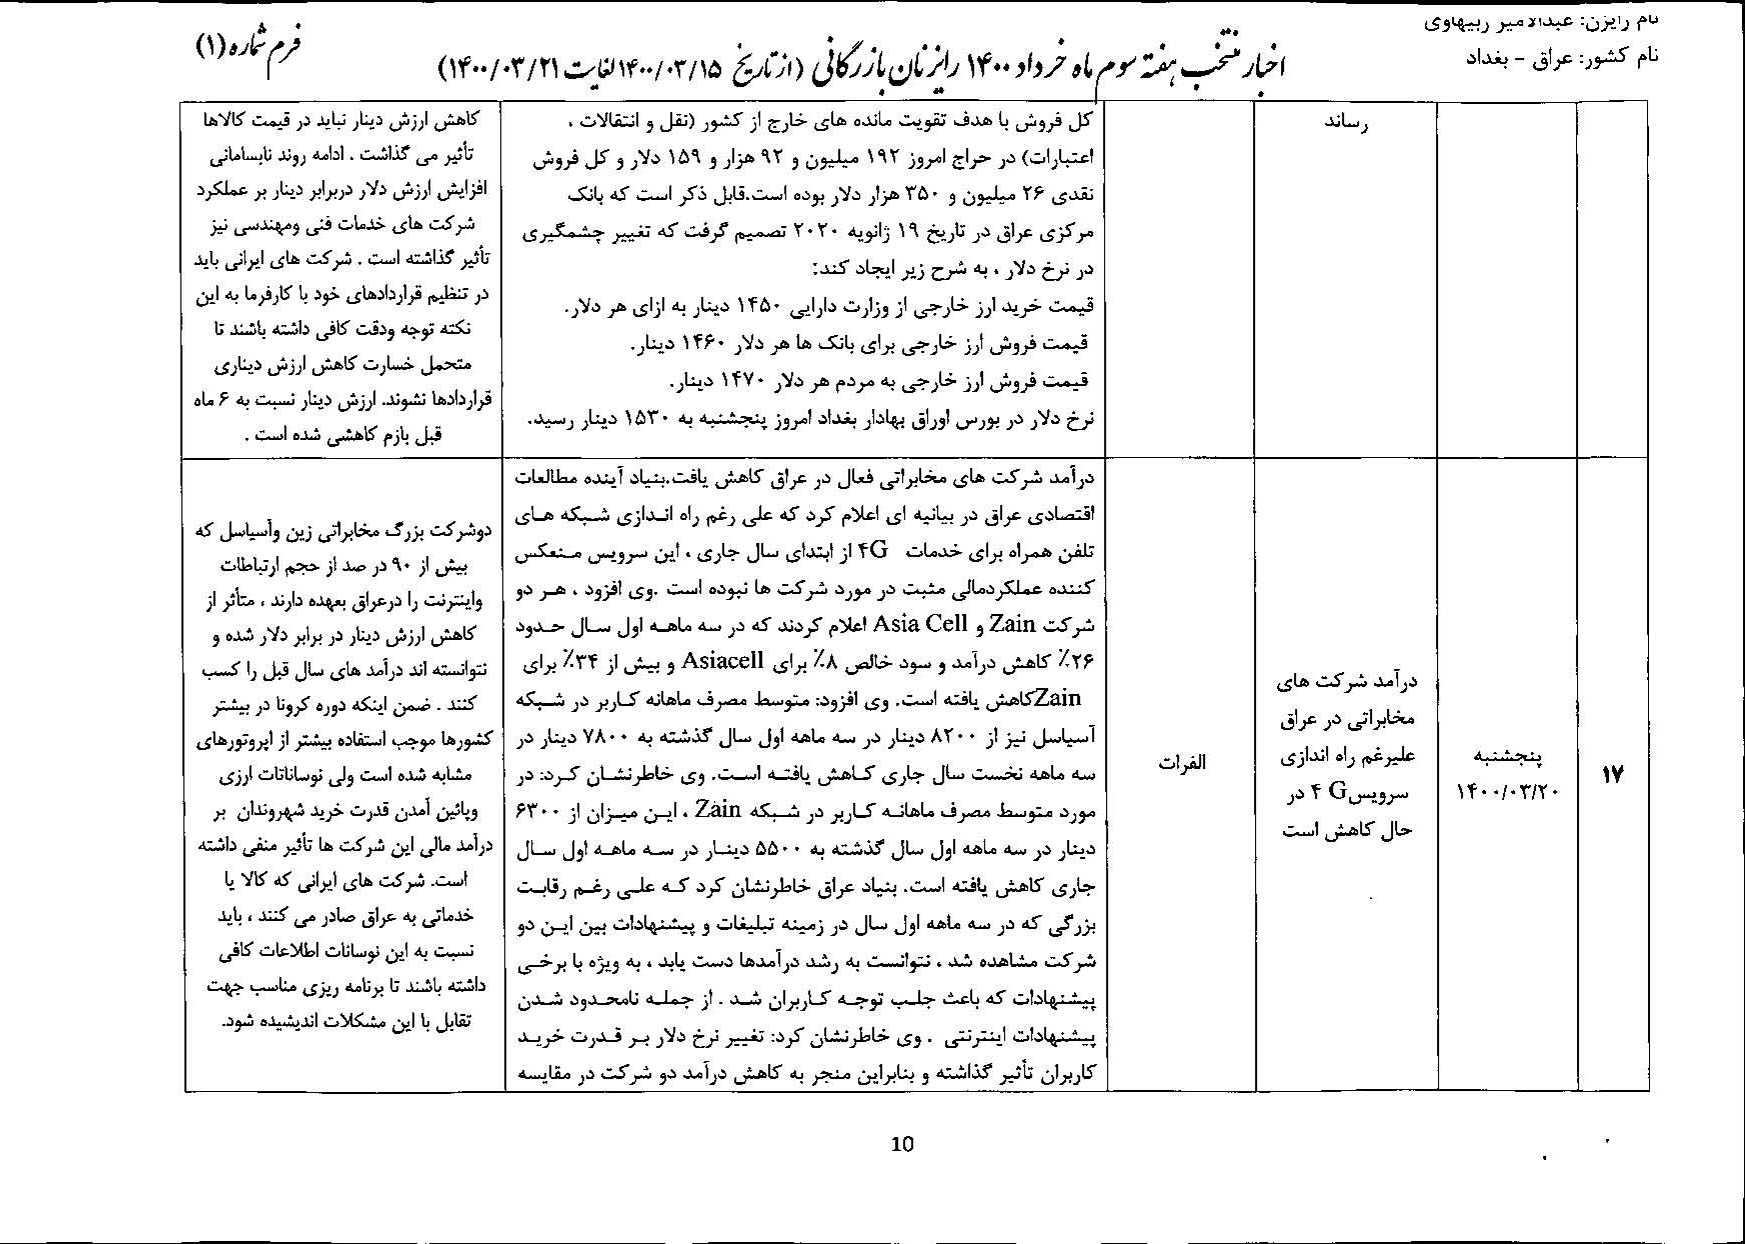 نام رایزن: عبدالامیر ربیهاوی
نام کشور: عراق - بغداد
اخبار منتخب هفته سوم ماه خرداد ۱۴۰۰ رایزنان بازرگانی (از تاریخ ۱۴۰۰/۰۳/۱۵ لغایت ۱۴۰۰/۰۳/۲۱)
فرم شماره (۱)
رساند
کل فروش با هدف تقویت مانده های خارج از کشور (نقل و انتقالات ،
اعتبارات) در حراج امروز ۱۹۲ میلیون و ۹۲ هزار و ۱۵۹ دلار و کل فروش
نقدی ۲۶ میلیون و ۳۵۰ هزار دلار بوده است.قابل ذکر است که بانک
مرکزی عراق در تاریخ ۱۹ ژانویه ۲۰۲۰ تصمیم گرفت که تغییر چشمگیری
در نرخ دلار ، به شرح زیر ایجاد کند:
قیمت خرید ارز خارجی از وزارت دارایی ۱۴۵۰ دینار به ازای هر دلار.
قیمت فروش ارز خارجی برای بانک ها هر دلار ۱۴۶۰ دینار.
قیمت فروش ارز خارجی به مردم هر دلار ۱۴۷۰ دینار.
نرخ دلار در بورس اوراق بهادار بغداد امروز پنجشنبه به ۱۵۳۰ دینار رسید.
کاهش ارزش دینار نباید در قیمت کالاها
تأثیر می گذاشت . ادامه روند نابسامانی
افزایش ارزش دلار دربرابر دینار بر عملکرد
شرکت های خدمات فنی ومهندسی نیز
تأثیر گذاشته است . شرکت های ایرانی باید
در تنظیم قراردادهای خود با کارفرما به این
نکته توجه ودقت کافی داشته باشند تا
متحمل خسارت کاهش ارزش دیناری
قراردادها نشوند. ارزش دینار نسبت به ۶ ماه
قبل بازم کاهشی شده است .
۱۷
پنجشنبه
۱۴۰۰/۰۳/۲۰
درآمد شرکت های
مخابراتی در عراق
علیرغم راه اندازی
سرویس۴ G در
حال کاهش است
الفرات
درآمد شرکت های مخابراتی فعال در عراق کاهش یافت.بنیاد آینده مطالعات
اقتصادی عراق در بیانیه ای اعلام کرد که علی رغم راه اندازی شبکه های
تلفن همراه برای خدمات ۴G از ابتدای سال جاری ، این سرویس منعکس
کننده عملکردمالی مثبت در مورد شرکت ها نبوده است .وی افزود ، هر دو
شرکت Zain و Asia Cell اعلام کردند که در سه ماهه اول سال حدود
۲۶٪ کاهش درآمد و سود خالص ۸٪ برای Asiacell و بیش از ۳۴٪ برای
Zainکاهش یافته است. وی افزود: متوسط مصرف ماهانه کاربر در شبکه
آسیاسل نیز از ۸۲۰۰ دینار در سه ماهه اول سال گذشته به ۷۸۰۰ دینار در
سه ماهه نخست سال جاری کاهش یافته است. وی خاطرنشان کرد: در
مورد متوسط مصرف ماهانه کاربر در شبکه Zain ، این میزان از ۶۳۰۰
دینار در سه ماهه اول سال گذشته به ۵۵۰۰ دینار در سه ماهه اول سال
جاری کاهش یافته است. بنیاد عراق خاطرنشان کرد که علی رغم رقابت
بزرگی که در سه ماهه اول سال در زمینه تبلیغات و پیشنهادات بین این دو
شرکت مشاهده شد ، نتوانست به رشد درآمدها دست یابد ، به ویژه با برخی
پیشنهادات که باعث جلب توجه کاربران شد . از جمله نامحدود شدن
پیشنهادات اینترنتی . وی خاطرنشان کرد: تغییر نرخ دلار بر قدرت خرید
کاربران تأثیر گذاشته و بنابراین منجر به کاهش درآمد دو شرکت در مقایسه
دوشرکت بزرگ مخابراتی زین وآسیاسل که
بیش از ۹۰ در صد از حجم ارتباطات
واینترنت را درعراق بعهده دارند ، متأثر از
کاهش ارزش دینار در برابر دلار شده و
نتوانسته اند درآمد های سال قبل را کسب
کنند . ضمن اینکه دوره کرونا در بیشتر
کشورها موجب استفاده بیشتر از اپروتورهای
مشابه شده است ولی نوساناتات ارزی
وپائین آمدن قدرت خرید شهروندان بر
درآمد مالی این شرکت ها تأثیر منفی داشته
است. شرکت های ایرانی که کالا یا
خدماتی به عراق صادر می کنند ، باید
نسبت به این نوسانات اطلاعات کافی
داشته باشند تا برنامه ریزی مناسب جهت
تقابل با این مشکلات اندیشیده شود.
10